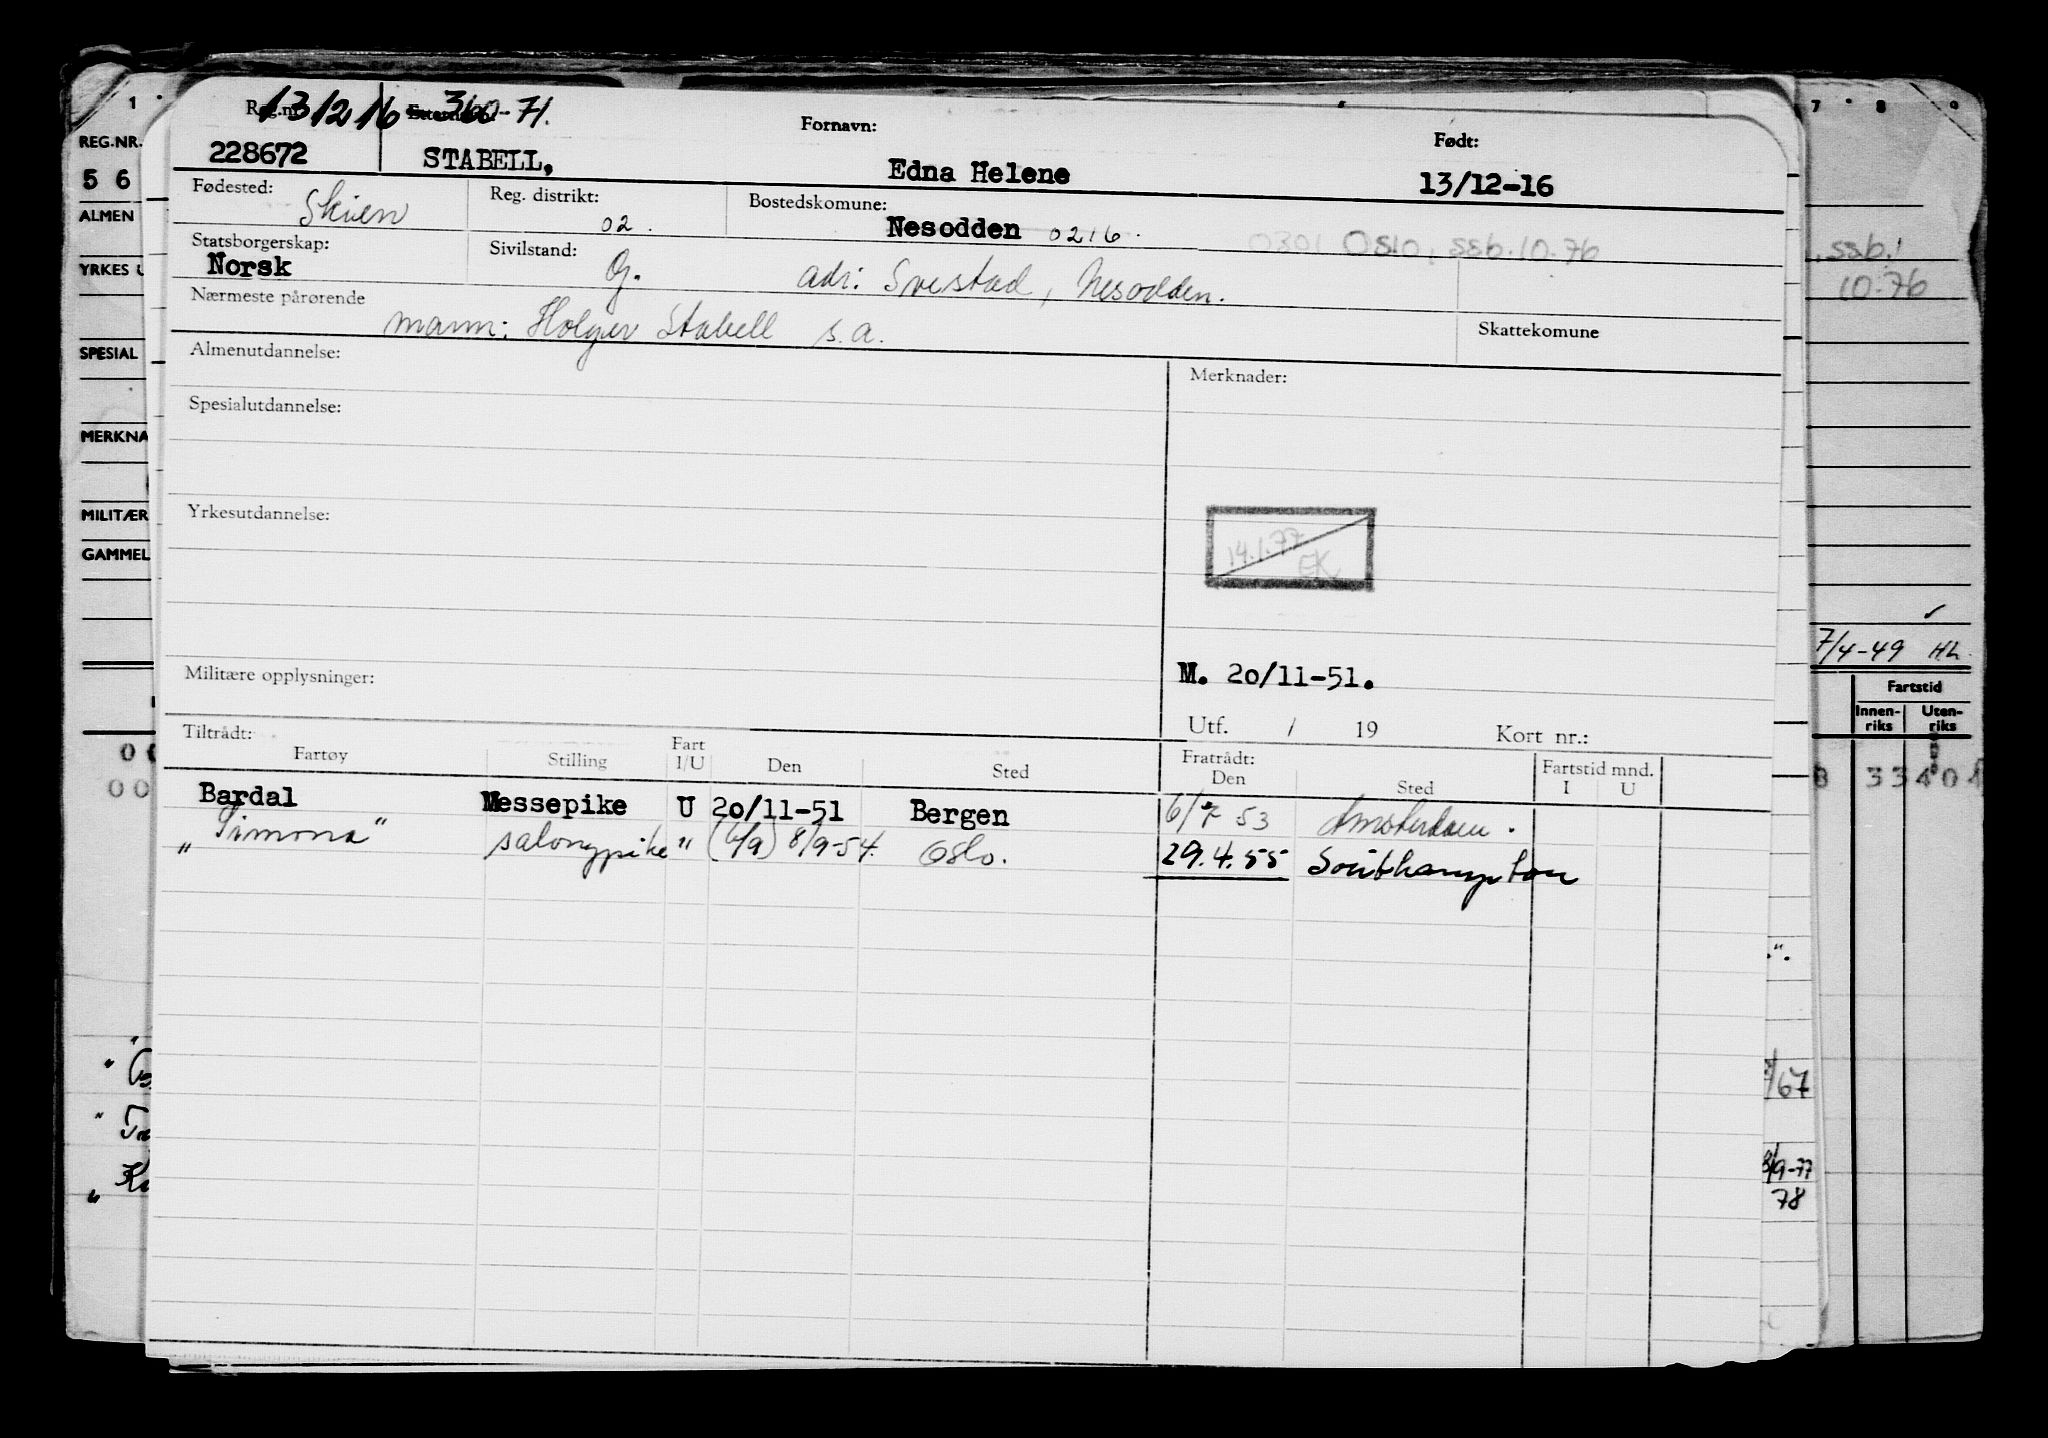 1
REG.NR.
5 6
ALMEN
YRKES
SPESIAL
MERKNA
MILITÆR
GAMMEL
Reg.nr. 131216 360-71.
Fornavn:
Født:
228672 STABELL, Edna Helene 13/12-16
Fødested: Skien Reg. distrikt: 02. Bostedskomune: Nesodden 0216. 0301 Oslo, ssb. 10.76
Statsborgerskap: Norsk Sivilstand: G. adr: Svestad, Nesodden.
Nærmeste pårørende mann: Holger Stabell s.a. Skattekomune
Almenutdannelse:
Merknader:
Spesialutdannelse:
Yrkesutdannelse:
14.1.77 EK
Militære opplysninger:
M. 20/11-51.
Utf. / 19 Kort nr.:
Tiltrådt: Fratrådt: Fartstid mnd.
Fartøy Stilling Fart I/U Den Sted Den Sted I U
Bardal Messepike U 20/11-51 Bergen 6/7 53 Amsterdam.
„Simona" salongpike " (6/9) 8/9-54. Oslo. 29.4.55 Southampton
7 8 9
ssb.
10.76
7/4-49 HL
Fartstid
Innen-riks Uten-riks
/67
8/9-77
78